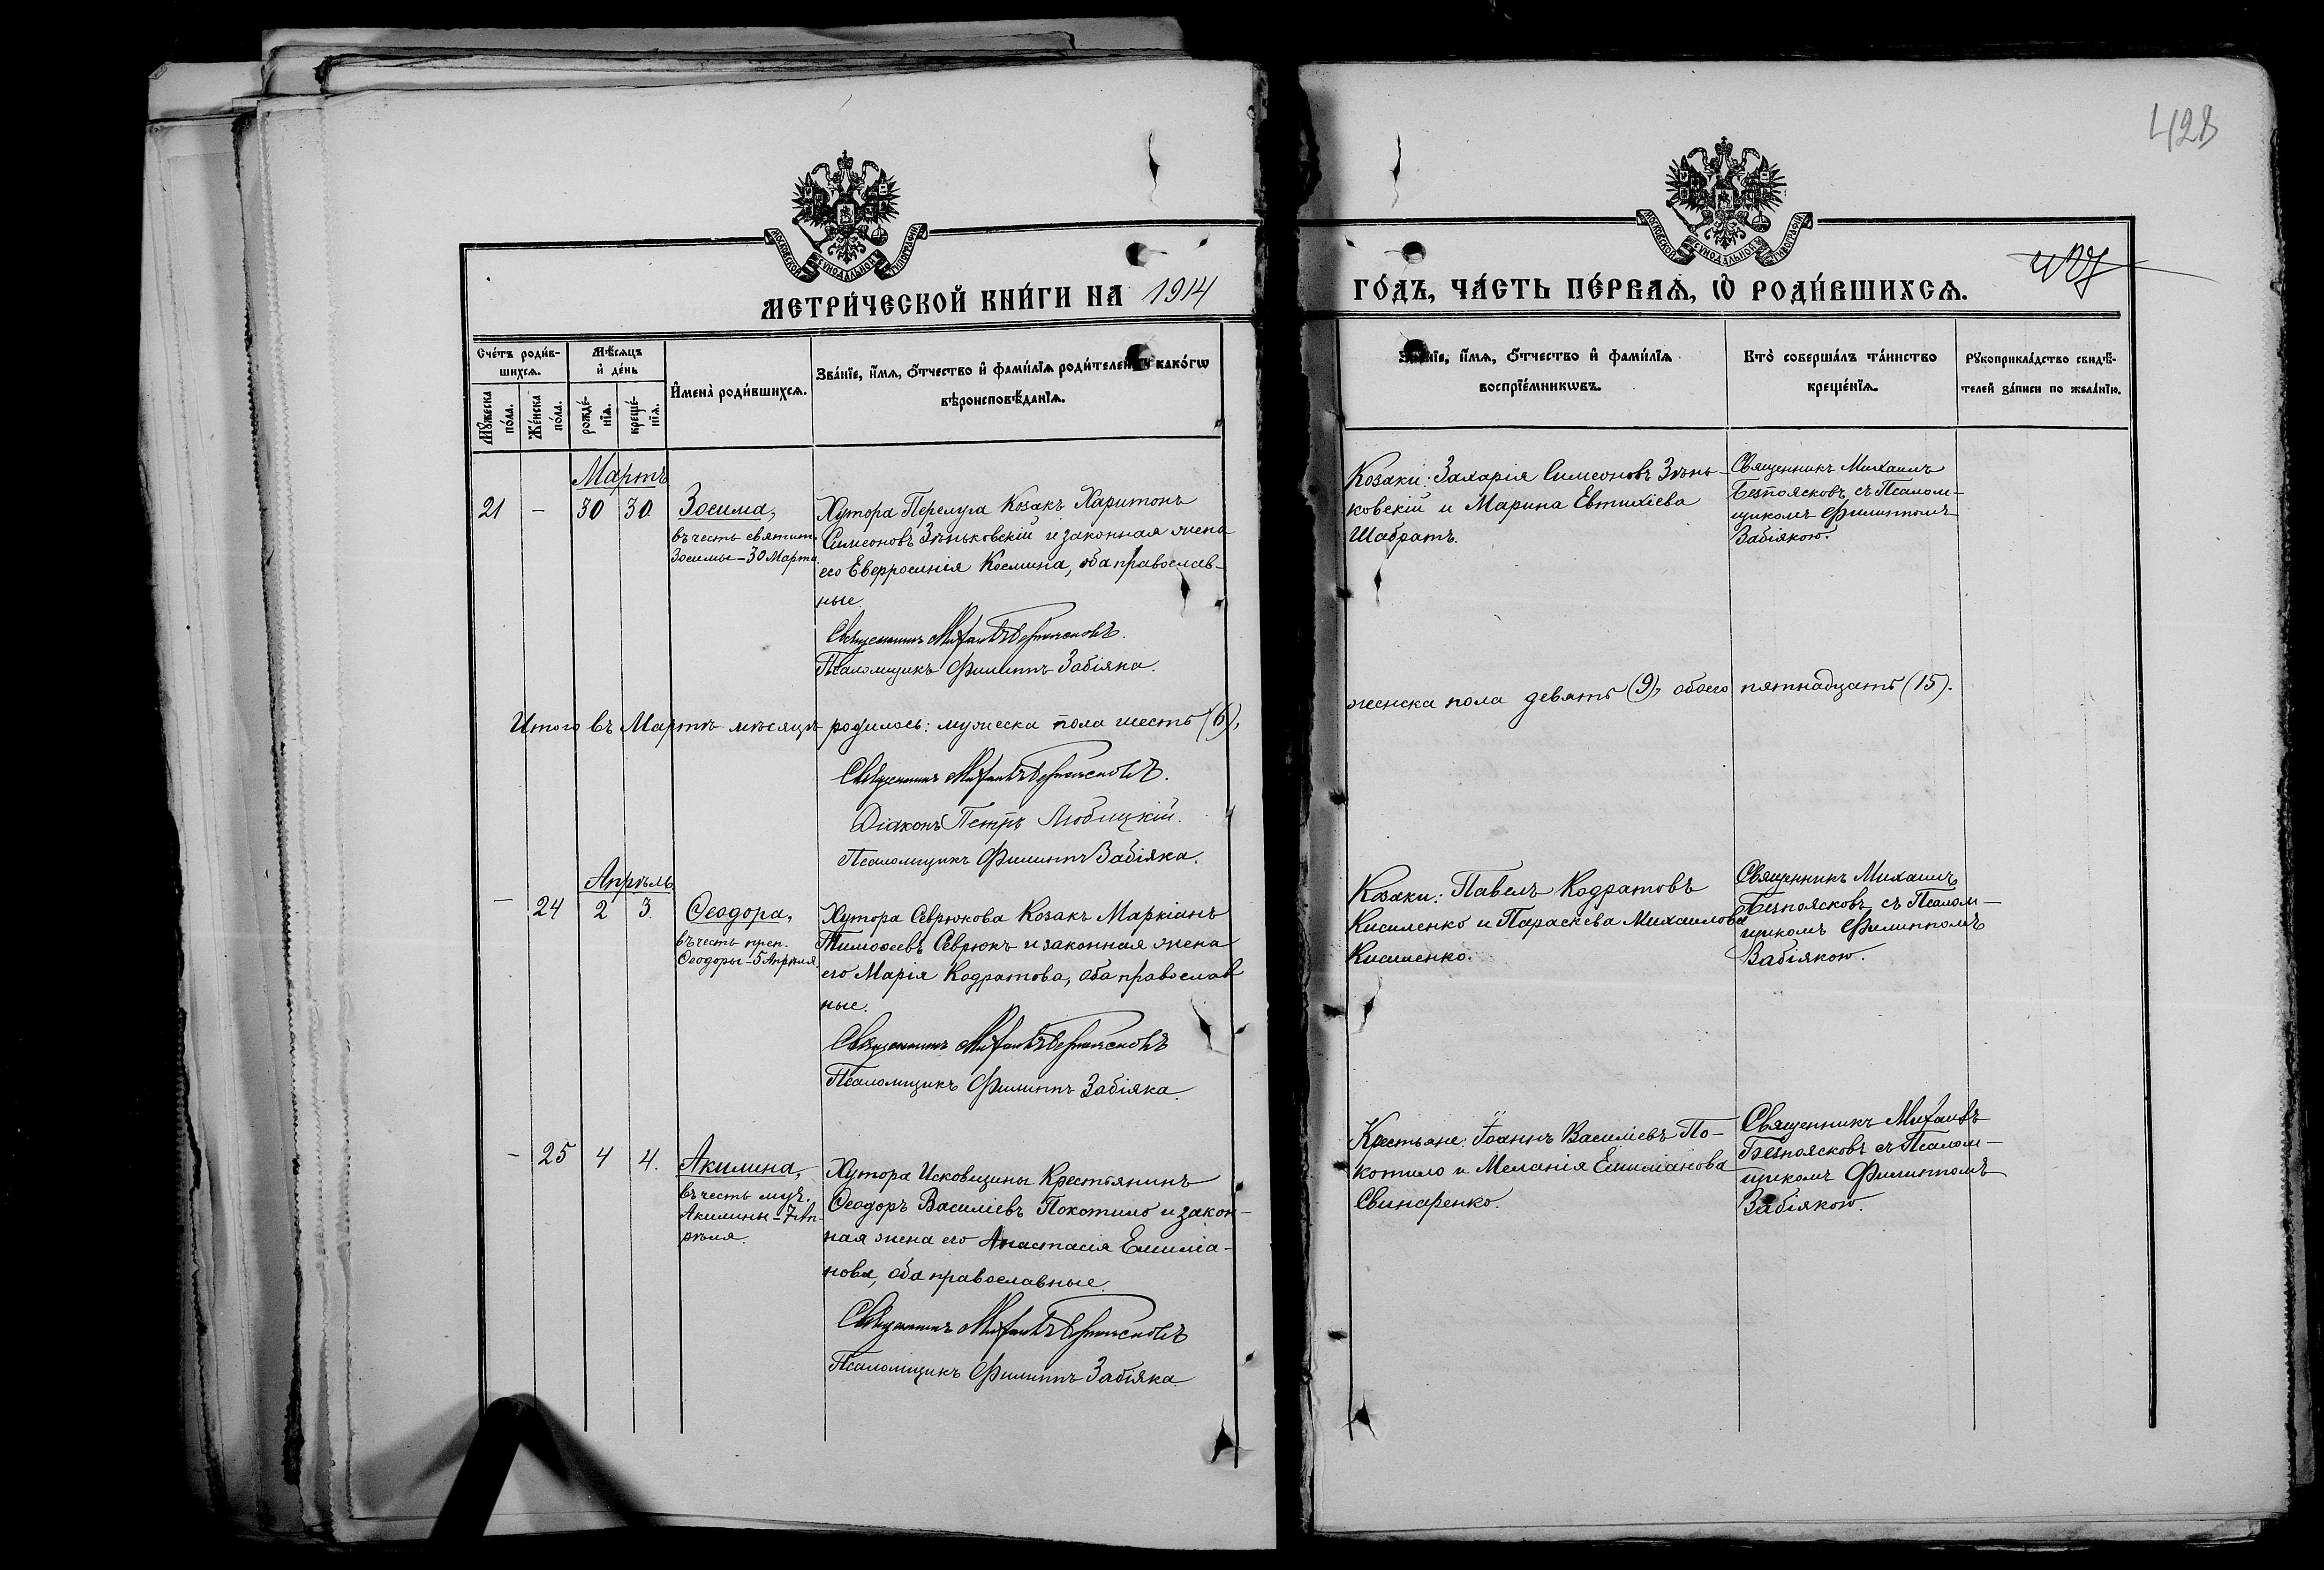 428
МОСКОВСКОЙ СѴНОДАЛЬНОЙ ТИПОГРАФІИ
МОСКОВСКОЙ СѴНОДАЛЬНОЙ ТИПОГРАФІИ
МЕТРИ́ЧЕСКОЙ КНИ́ГИ НА 1914
ГО́ДЪ, ЧА́СТЬ ПЕ́РВАѦ, Ѡ РОДИ́ВШИХСѦ.
Сче́тъ роди́в-
шихсѧ.
Мꙋ́жеска по́ла.
Же́нска по́ла.
Мѣ́сѧцъ
и де́нь
рожде́-
нїѧ.
креще́-
нїѧ.
Имена̀ роди́вшихсѧ.
Зва́нїе, и́мѧ, ѻ́тчество и фамилїѧ роди́телей, и како́гѡ
вѣроисповѣ́данїѧ.
Зва́нїе, и́мѧ, ѻ́тчество и фами́лїѧ
воспрїе́мникѡвъ.
Кто̀ соверша́лъ та́инство
креще́нїѧ.
Рꙋкоприкла́дство свидѣ́-
телей за́писи по жела́нїю.
Мартъ
21 – 30 30. Зосима,
въ честь святит.
Зосимы – 30 Марта.
Хутора Перелуга Козакъ Харитонъ
Симеоновъ Зѣньковскій и законная жена
его Еверросинія Космина, оба православ-
ные.
Священникъ Михаилъ Безпоясковъ.
Псаломщикъ Филиппъ Забіяка.
Козаки: Захарія Симеоновъ Зѣнь-
ковскій и Марина Евтихіева
Шабратъ.
Священникъ Михаилъ
Безпоясковъ съ Псалом-
щикомъ Филиппомъ
Забіякою.
Итого въ Мартѣ мѣсяцѣ родилось: мужеска пола шесть (6),
женска пола девять (9), обоего пятнадцать (15).
Священникъ Михаилъ Безпоясковъ.
Діаконъ Петръ Любицкій.
Псаломщикъ Филиппъ Забіяка.
Апрѣль
– 24 2 3. Ѳеодора,
въ честь преп.
Ѳеодоры – 5 Апрѣля
Хутора Севрюкова Козакъ Маркіанъ
Тимоѳеевъ Севрюкъ и законная жена
его Марія Кодратова, оба православ
ные.
Священникъ Михаилъ Безпоясковъ
Псаломщикъ Филиппъ Забіяка.
Козаки: Павелъ Кодратовъ
Кисиленко и Параскева Михаилова
Кисиленко.
Священникъ Михаилъ
Безпоясковъ съ Псалом-
щикомъ Филиппомъ
Забіякою.
– 25 4 4. Акилина,
въ честь муч.
Акилины – 7 Ап-
рѣля.
Хутора Исковщины Крестьянинъ
Ѳеодоръ Василіевъ Покотило и закон-
ная жена его Анастасія Емиліа-
нова, оба православные.
Священникъ Михаилъ Безпоясковъ
Псаломщикъ Филиппъ Забіяка.
Крестьяне: Іоаннъ Василіевъ По-
котило и Меланія Емиліанова
Свинаренко.
Священникъ Михаилъ
Безпоясковъ съ Псалом-
щикомъ Филиппомъ
Забіякою.